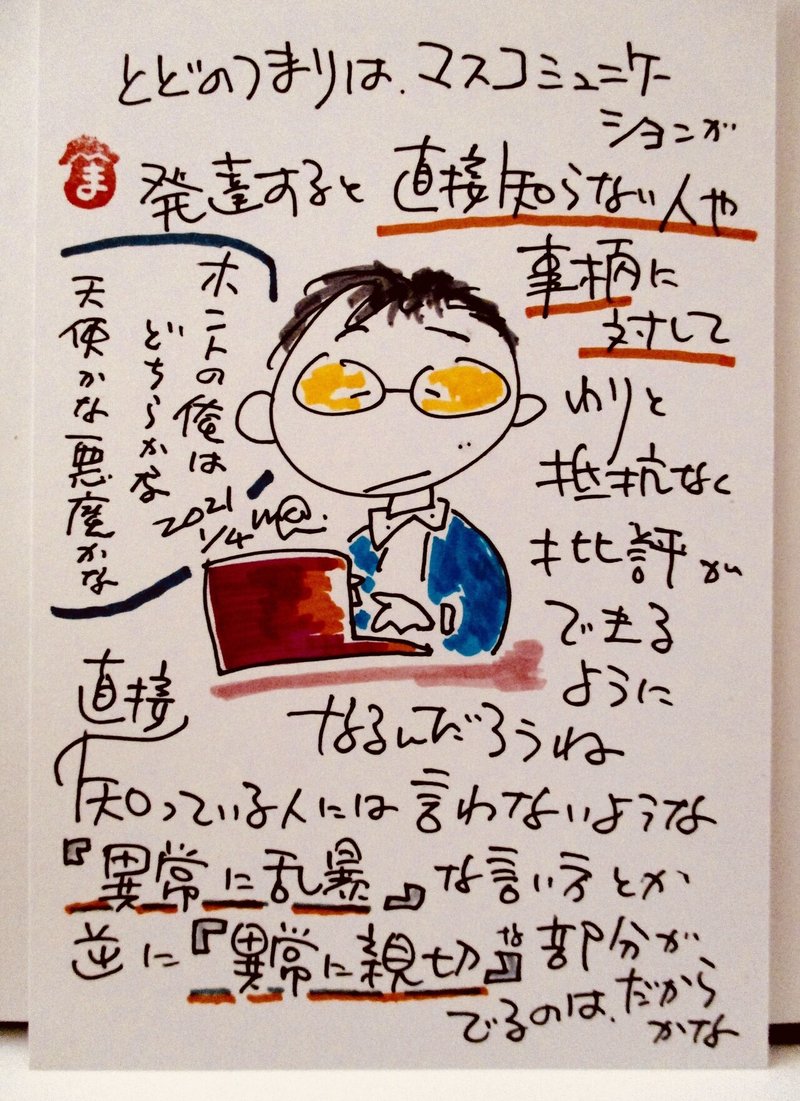 とどのつまりは、マスコミュニケー
ションが
ま
発達すると直接知らない人や
事柄に
対して
わりと
抵抗なく
批評が
できる
ように
なるんだろうね
ホントの俺は
どちらかな
天使かな悪魔かな
2021
1/4
直接
知っている人には言わないような
『異常に乱暴』な言い方とか
逆に『異常に親切』な部分が
でるのは、だから
かな